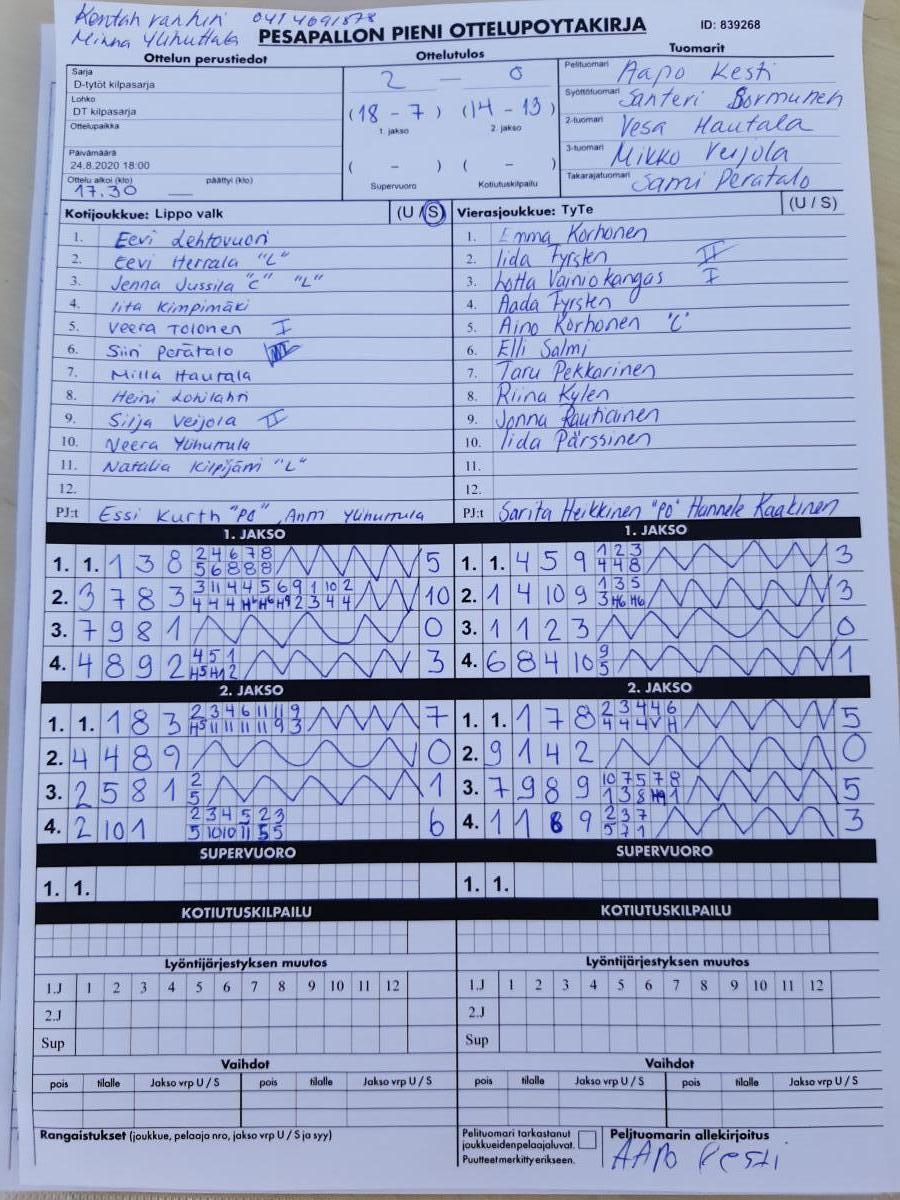 Kentän vanhin 0414691878
Minna Ylihuttula
PESÄPALLON PIENI OTTELUPÖYTÄKIRJA ID: 839268
Ottelun perustiedot Ottelutulos Tuomarit
Sarja
D-tytöt kilpasarja
Lohko
DT kilpasarja
Ottelupaikka
Päivämäärä
24.8.2020 18:00
Ottelu alkoi (klo) päättyi (klo)
17.30
2 — 0
(18 - 7) (14 - 13)
1. jakso 2. jakso
( - ) ( - )
Supervuoro Kotiutuskilpailu
Pelituomari Aapo Kesti
Syöttötuomari Santeri Bormunen
2-tuomari Vesa Hautala
3-tuomari Mikko Veijola
Takarajatuomari Sami Perätalo
Kotijoukkue: Lippo valk (U / S) Vierasjoukkue: TyTe (U / S)
1. Eevi Lehtovuori 1. Emma Korhonen
2. Eevi Herrala "L" 2. Iida Tyrsten II
3. Jenna Jussila "C" "L" 3. Lotta Vainiokangas I
4. Iita Kimpimäki 4. Aada Tyrsten
5. Veera Tolonen I 5. Aino Korhonen "C"
6. Siiri Perätalo 6. Elli Salmi
7. Milla Hautala 7. Taru Pekkarinen
8. Heini Lohilahti 8. Riina Kylen
9. Silja Veijola II 9. Jonna Rautiainen
10. Neera Ylihurula 10. Iida Pärssinen
11. Natalia Kilpijärvi "L" 11.
12. 12.
PJ:t Essi Kurth "PO", Anni PJ:t Sarita Heikkinen "PO" Hannele Kaakinen
1. JAKSO 1. JAKSO
1. 1. 1 3 8 2 4 6 7 8 5 1. 1. 4 5 9 1 2 3 3
5 6 8 8 8 4 4 8
2. 3 7 8 3 3 11 4 4 5 6 9 1 10 2 10 2. 1 4 10 9 1 3 5 3
4 4 4 H4 H6 H9 2 3 4 4 3 H6 H6
3. 7 9 8 1 0 3. 1 1 2 3 0
4. 4 8 9 2 4 5 1 3 4. 6 8 4 10 9 1
H5 H1 2 5
2. JAKSO 2. JAKSO
1. 1. 1 8 3 2 3 4 6 11 11 9 7 1. 1. 1 7 8 2 3 4 4 6 5
H5 11 11 11 11 9 3 4 4 4 V H
2. 4 4 8 9 0 2. 9 1 4 2 0
3. 2 5 8 1 2 1 3. 7 9 8 9 10 7 5 7 8 5
5 1 3 8 H9 1
4. 2 10 1 2 3 4 5 2 3 6 4. 1 1 8 9 2 3 7 3
5 10 10 11 5 5 5 7 1
SUPERVUORO SUPERVUORO
1. 1. 1. 1.
KOTIUTUSKILPAILU KOTIUTUSKILPAILU
Lyöntijärjestyksen muutos Lyöntijärjestyksen muutos
1.J 1 2 3 4 5 6 7 8 9 10 11 12 1.J 1 2 3 4 5 6 7 8 9 10 11 12
2.J 2.J
Sup Sup
Vaihdot Vaihdot
pois tilalle Jakso vrp U / S pois tilalle Jakso vrp U / S pois tilalle Jakso vrp U / S pois tilalle Jakso vrp U / S
Rangaistukset (joukkue, pelaaja nro, jakso vrp U / S ja syy)
Pelituomari tarkastanut
joukkueidenpelaajaluvat.
Puutteet merkitty erikseen.
Pelituomarin allekirjoitus
AAPO Kesti